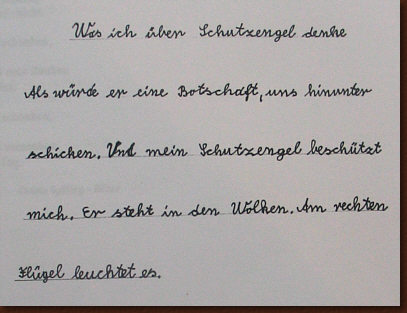 Was ich über Schutzengel denke
Als würde er eine Botschaft, uns hinunter
schicken. Und mein Schutzengel beschützt
mich. Er steht in den Wolken. Am rechten
Flügel leuchtet es.